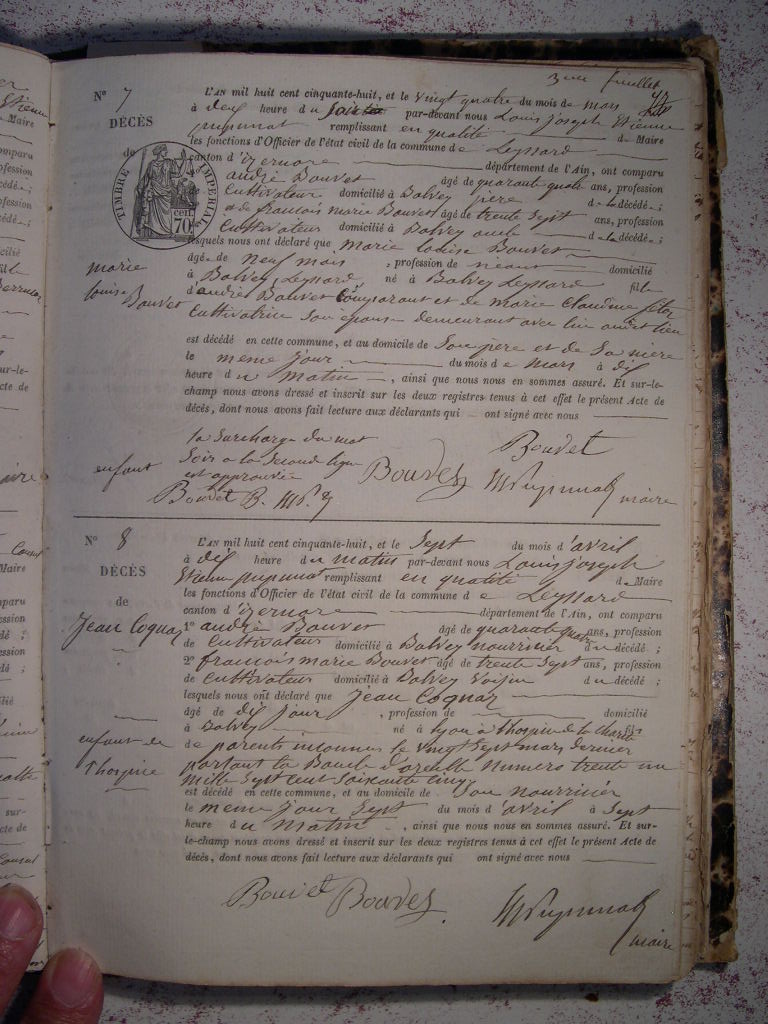 3eme feuillet
N° 7
DÉCÈS
de
TIMBRE IMPÉRIAL
70 CENT.
marie
louise
Bouvet
enfant
L'AN mil huit cent cinquante-huit, et le vingt quatre du mois de mars
à dix heure du soir par-devant nous Louis Joseph Etienne
pupunat remplissant en qualité de Maire
les fonctions d'Officier de l'état civil de la commune de Leyssard
canton d'izernore département de l'Ain, ont comparu
andré Bouvet âgé de quarante quatre ans, profession
de Cultivateur domicilié à Bolvey père de la décédée;
et de francois marie Bouvet âgé de trente sept ans, profession
Cultivateur domicilié à Bolvey de la décédée;
lesquels nous ont déclaré que marie louise Bouvet
âgé e de neuf mois, profession de domicilié
à Bolvey Leyssard né à Bolvey Leyssard fille
d'andré Bouvet Comparant et de marie Claudine
Cultivatrice Son épouse demeurant avec lui audit lieu
est décédé en cette commune, et au domicile de Son père et de Sa mère
le meme jour du mois de mars à dix
heure du matin, ainsi que nous nous en sommes assuré. Et sur-le-
champ nous avons dressé et inscrit sur les deux registres tenus à cet effet le présent Acte de
décès, dont nous avons fait lecture aux déclarants qui ont signé avec nous
la Surcharge du mot
Soir a la Seconde ligne
est approuvée
Bouvet
Bouvet B.
Bouvet
Pupunat maire
N° 8
DÉCÈS
de
Jean Cognaz
enfant de
l'hospice
L'AN mil huit cent cinquante-huit, et le Sept du mois d'avril
à dix heure du matin par-devant nous Louis Joseph
Etienne pupunat remplissant en qualité de Maire
les fonctions d'Officier de l'état civil de la commune de Leyssard
canton d'izernore département de l'Ain, ont comparu
1° andré Bouvet âgé de quarante quatre ans, profession
de Cultivateur domicilié à Bolvey nourricier du décédé;
2° francois marie Bouvet âgé de trente Sept ans, profession
de Cultivateur domicilié à Bolvey voisin du décédé;
lesquels nous ont déclaré que Jean Cognaz
âgé de dix jour, profession de domicilié
à Bolvey né à lyon à lhospice de la Charité fils
de parents inconnus le vingt Sept mars dernier
portant la Boucle d'oreille numero trente un
mille Sept cent Soixante cinq
est décédé en cette commune, et au domicile de Son nourricier
le meme jour Sept du mois d'avril à Sept
heure du matin, ainsi que nous nous en sommes assuré. Et sur-
le-champ nous avons dressé et inscrit sur les deux registres tenus à cet effet le présent Acte de
décès, dont nous avons fait lecture aux déclarants qui ont signé avec nous
Bouvet Bouvet
Pupunat
maire